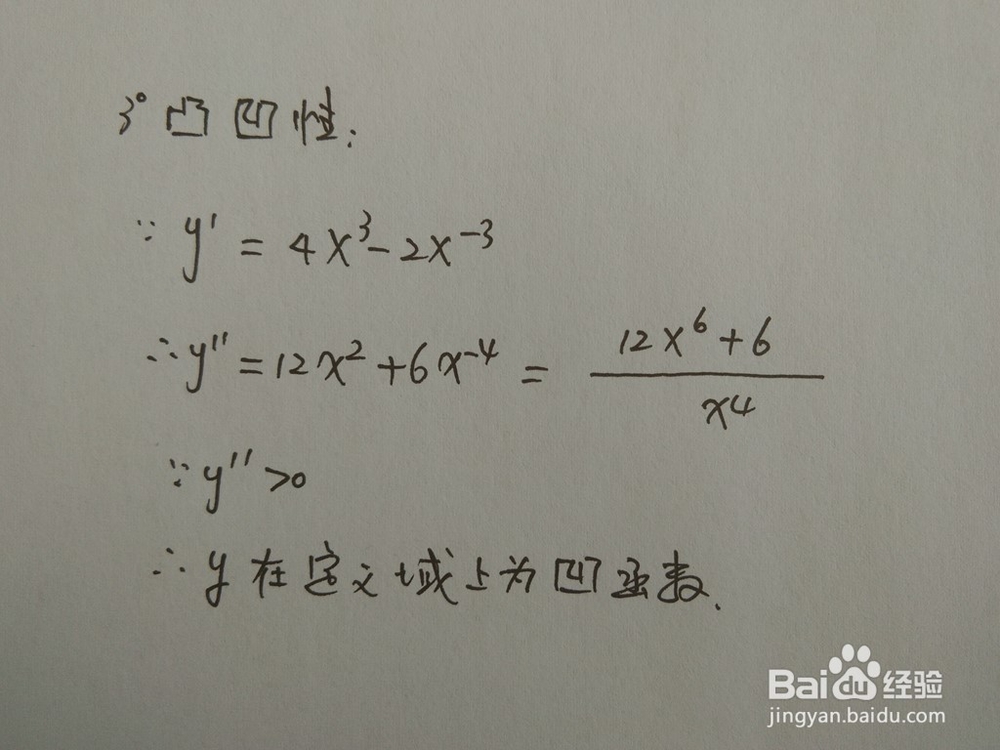 3° 凸凹性.
∵ y' = 4x³-2x⁻³
∴ y'' = 12x²+6x⁻⁴ = (12x⁶+6)/x⁴
∵ y''>0
∴ y在定义域上为凹函数.
Baidu经验
jingyan.baidu.com